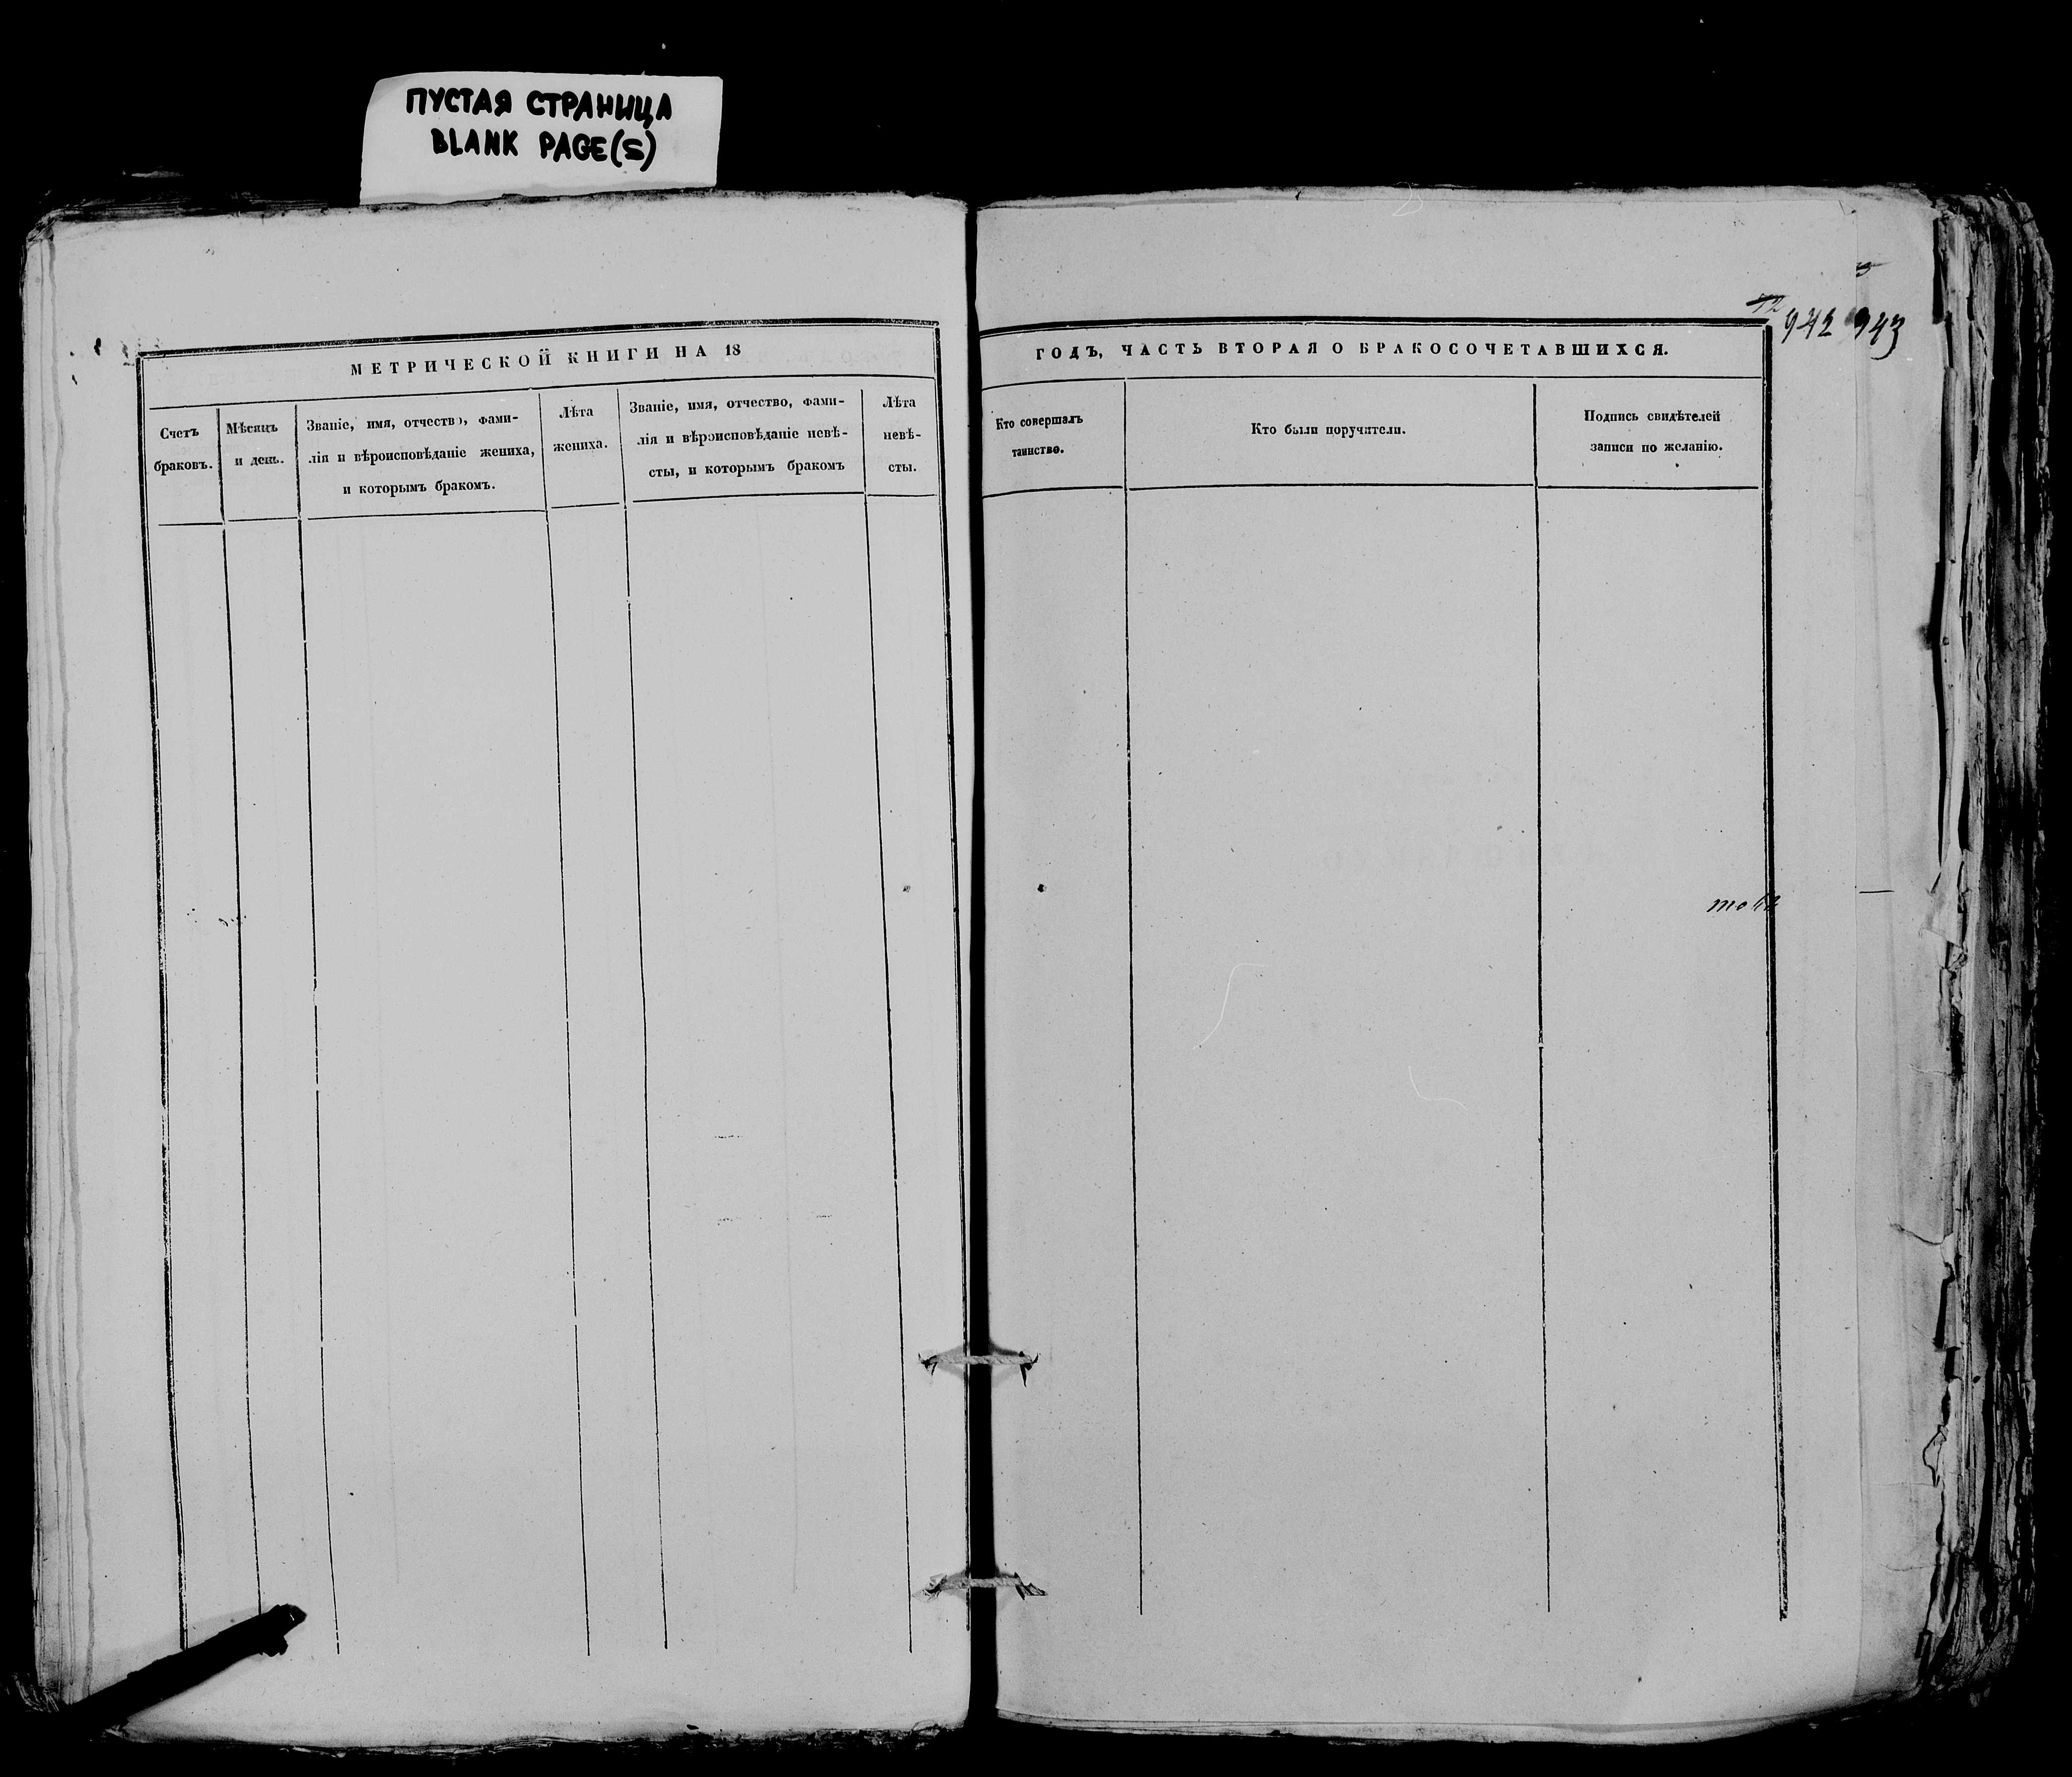 ПУСТАЯ СТРАНИЦА
BLANK PAGE(S)
942 943
МЕТРИЧЕСКОЙ КНИГИ НА 18
Счетъ
браковъ.
Мѣсяцъ
и день.
Званіе, имя, отчество, фами-
лія и вѣроисповѣданіе жениха,
и которымъ бракомъ.
Лѣта
жениха.
Званіе, имя, отчество, фами-
лія и вѣроисповѣданіе невѣ-
сты, и которымъ бракомъ
Лѣта
невѣ-
сты.
ГОДЪ, ЧАСТЬ ВТОРАЯ О БРАКОСОЧЕТАВШИХСЯ.
Кто совершалъ
таинство.
Кто были поручители.
Подпись свидѣтелей
записи по желанію.